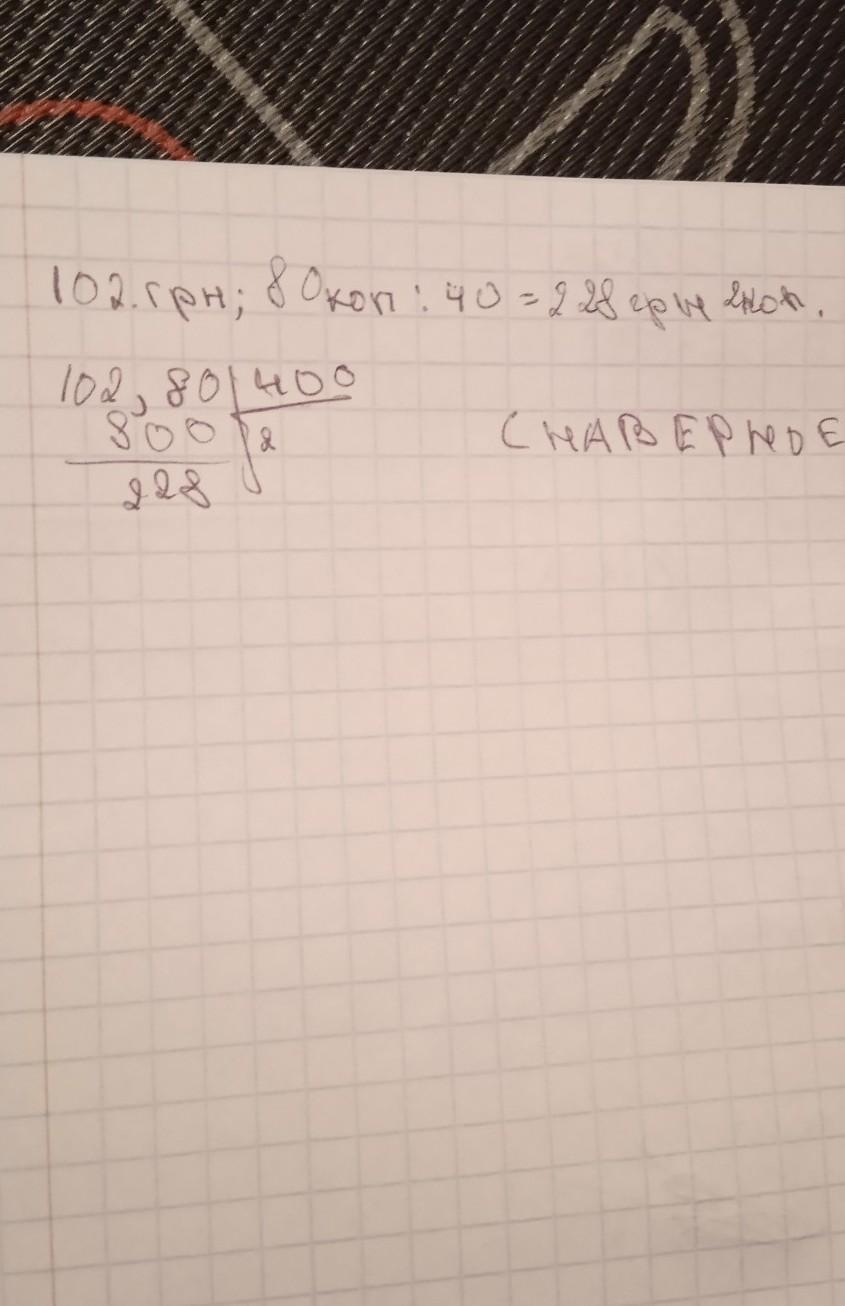 102.грн; 80коп : 40 = 228грн 2коп.
102,80 400
800 2
228
(НАВЕРНОЕ